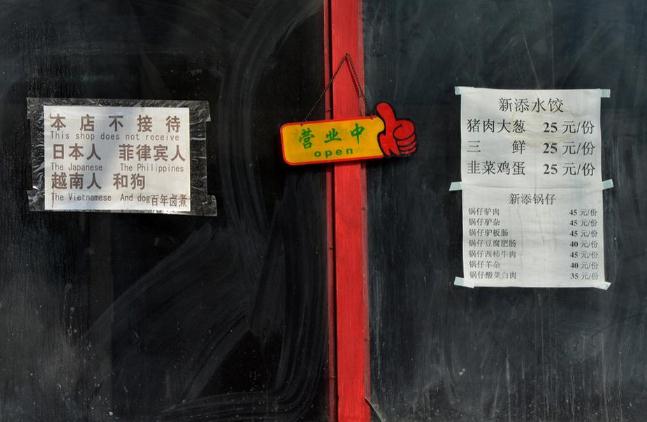 本店不接待
This shop does not receive
日本人 菲律宾人
The Japanese The Philippines
越南人 和狗
The Vietnamese And dog百年卤煮
营业中
open
新添水饺
猪肉大葱 25元/份
三鲜 25元/份
韭菜鸡蛋 25元/份
新添锅仔
锅仔驴肉 45元/份
锅仔驴杂 45元/份
锅仔驴板肠 45元/份
锅仔豆腐肥肠 40元/份
锅仔西柿牛肉 45元/份
锅仔羊杂 40元/份
锅仔酸菜白肉 35元/份